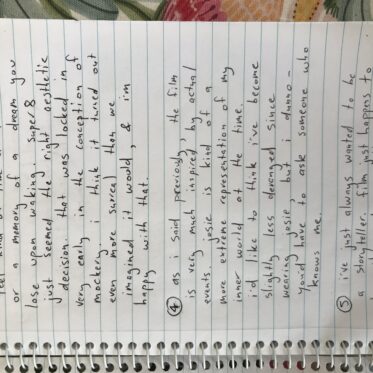 or a memory of a dream you
lose upon waking. super 8
just seemed the right aesthetic
decision that was locked in
very early in the conception of
mockery. i think it turned out
even more surreal than we
imagined it would, & i'm
happy with that.
④ as i said previously, the film
is very much inspired by actual
events. josie is kind of a
more extreme representation of my
inner world at the time.
i'd like to think i've become
slightly less deranged since
wearing josie, but i dunno –
you'd have to ask someone who
knows me.
⑤ i've just always wanted to be
a storyteller. film just happens to